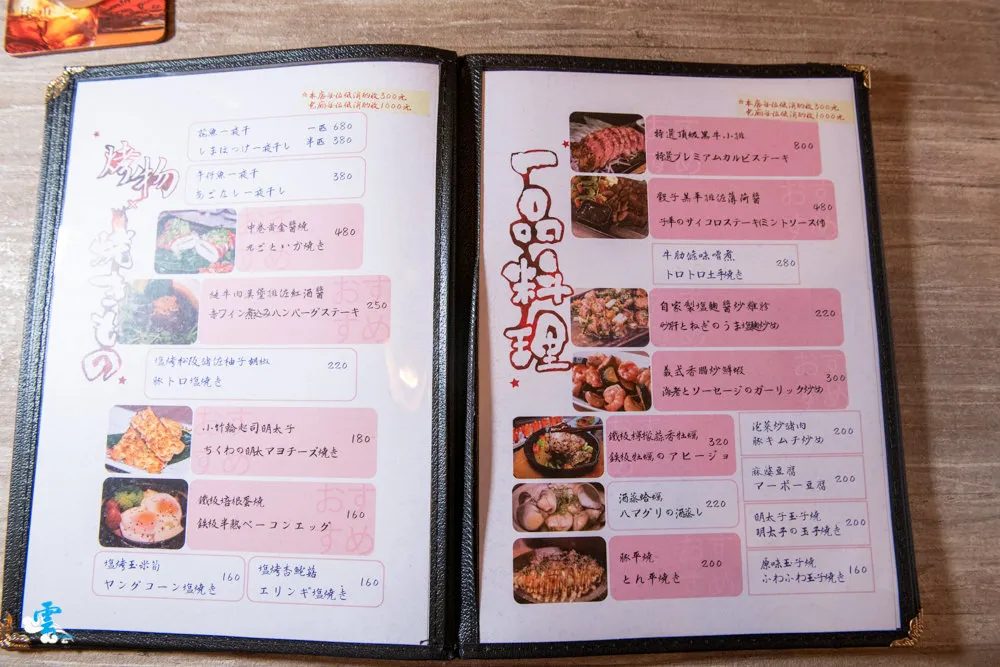 ☆本店每位低消酌收300元
包廂每位低消酌收1000元
烤物
焼きもの
花魚一夜干 一匹 680
しまほっけ一夜干し 半匹 380
竹魚一夜干 380
一夜干し
中卷黃金醬燒 480
丸ごといか焼き
純牛肉漢堡排佐紅酒醬 250
赤ワイン煮込みハンバーグステーキ
塩烤松阪豬佐柚子胡椒 220
豚トロ塩焼き
小竹輪起司明太子 180
ちくわの明太マヨチーズ焼き
鐵板培根蛋燒 160
鉄板半熟ベーコンエッグ
塩烤玉米筍 160
ヤングコーン塩焼き
塩烤杏鮑菇 160
エリンギ塩焼き
雲
☆本店每位低消酌收300元
包廂每位低消酌收1000元
一品料理
特選頂級黑牛小排 800
特選プレミアムカルビステーキ
骰子黑平排佐薄荷醬 480
子牛のサイコロステーキ(ミントソース付
牛肋佐味噌煮 280
トロトロ土手焼き
自家製塩麴醬炒雞胗 220
砂肝とねぎのうま塩麹炒め
義式香腸炒鮮蝦 300
海老とソーセージのガーリック炒め
鐵板檸檬蒜香牡蠣 320
鉄板牡蠣のアヒージョ
酒蒸蛤蠣 220
ハマグリの酒蒸し
豚平燒 200
とん平焼き
泡菜炒豬肉 200
豚キムチ炒め
麻婆豆腐 200
マーボー豆腐
明太子玉子燒 200
明太子の玉子焼き
原味玉子燒 160
ふわふわ玉子焼き